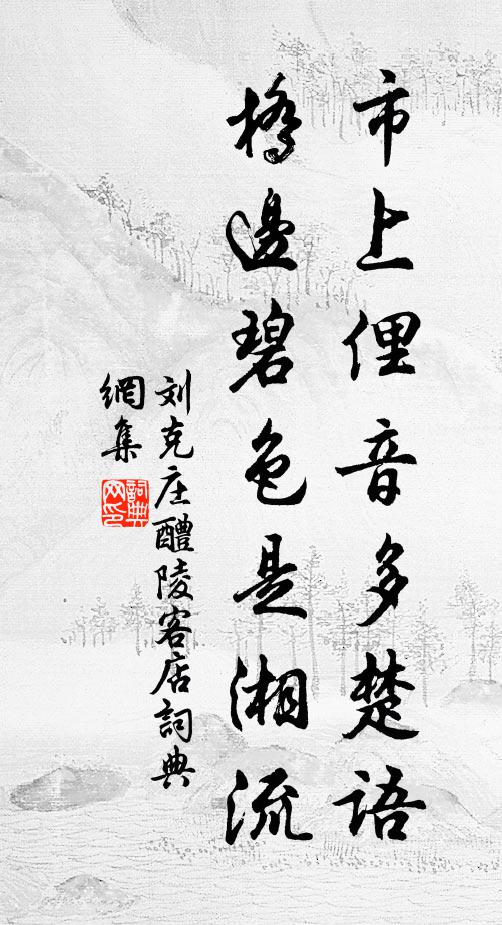 市上俚音多楚语
橋邊碧色是湘流
刘克庄醴陵客店詞典
網集
詞典网印